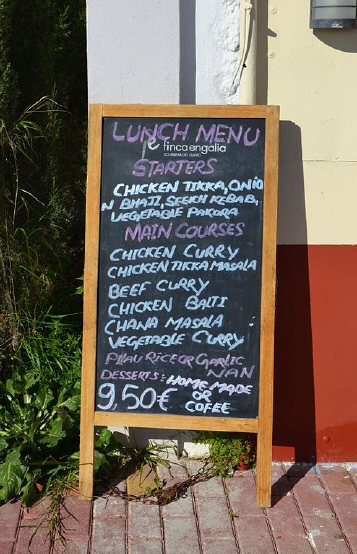 LUNCH MENU
fincaengalia
STARTERS
CHICKEN TIKKA, ONIO
N BHAJI, SEEKH KEBAB,
VEGETABLE PAKORA
MAIN COURSES
CHICKEN CURRY
CHICKEN TIKKA MASALA
BEEF CURRY
CHICKEN BALTI
CHANA MASALA
VEGETABLE CURRY
PILAU RICE OR GARLIC
NAN
DESSERTS: HOME MADE
9,50€ OR
COFEE